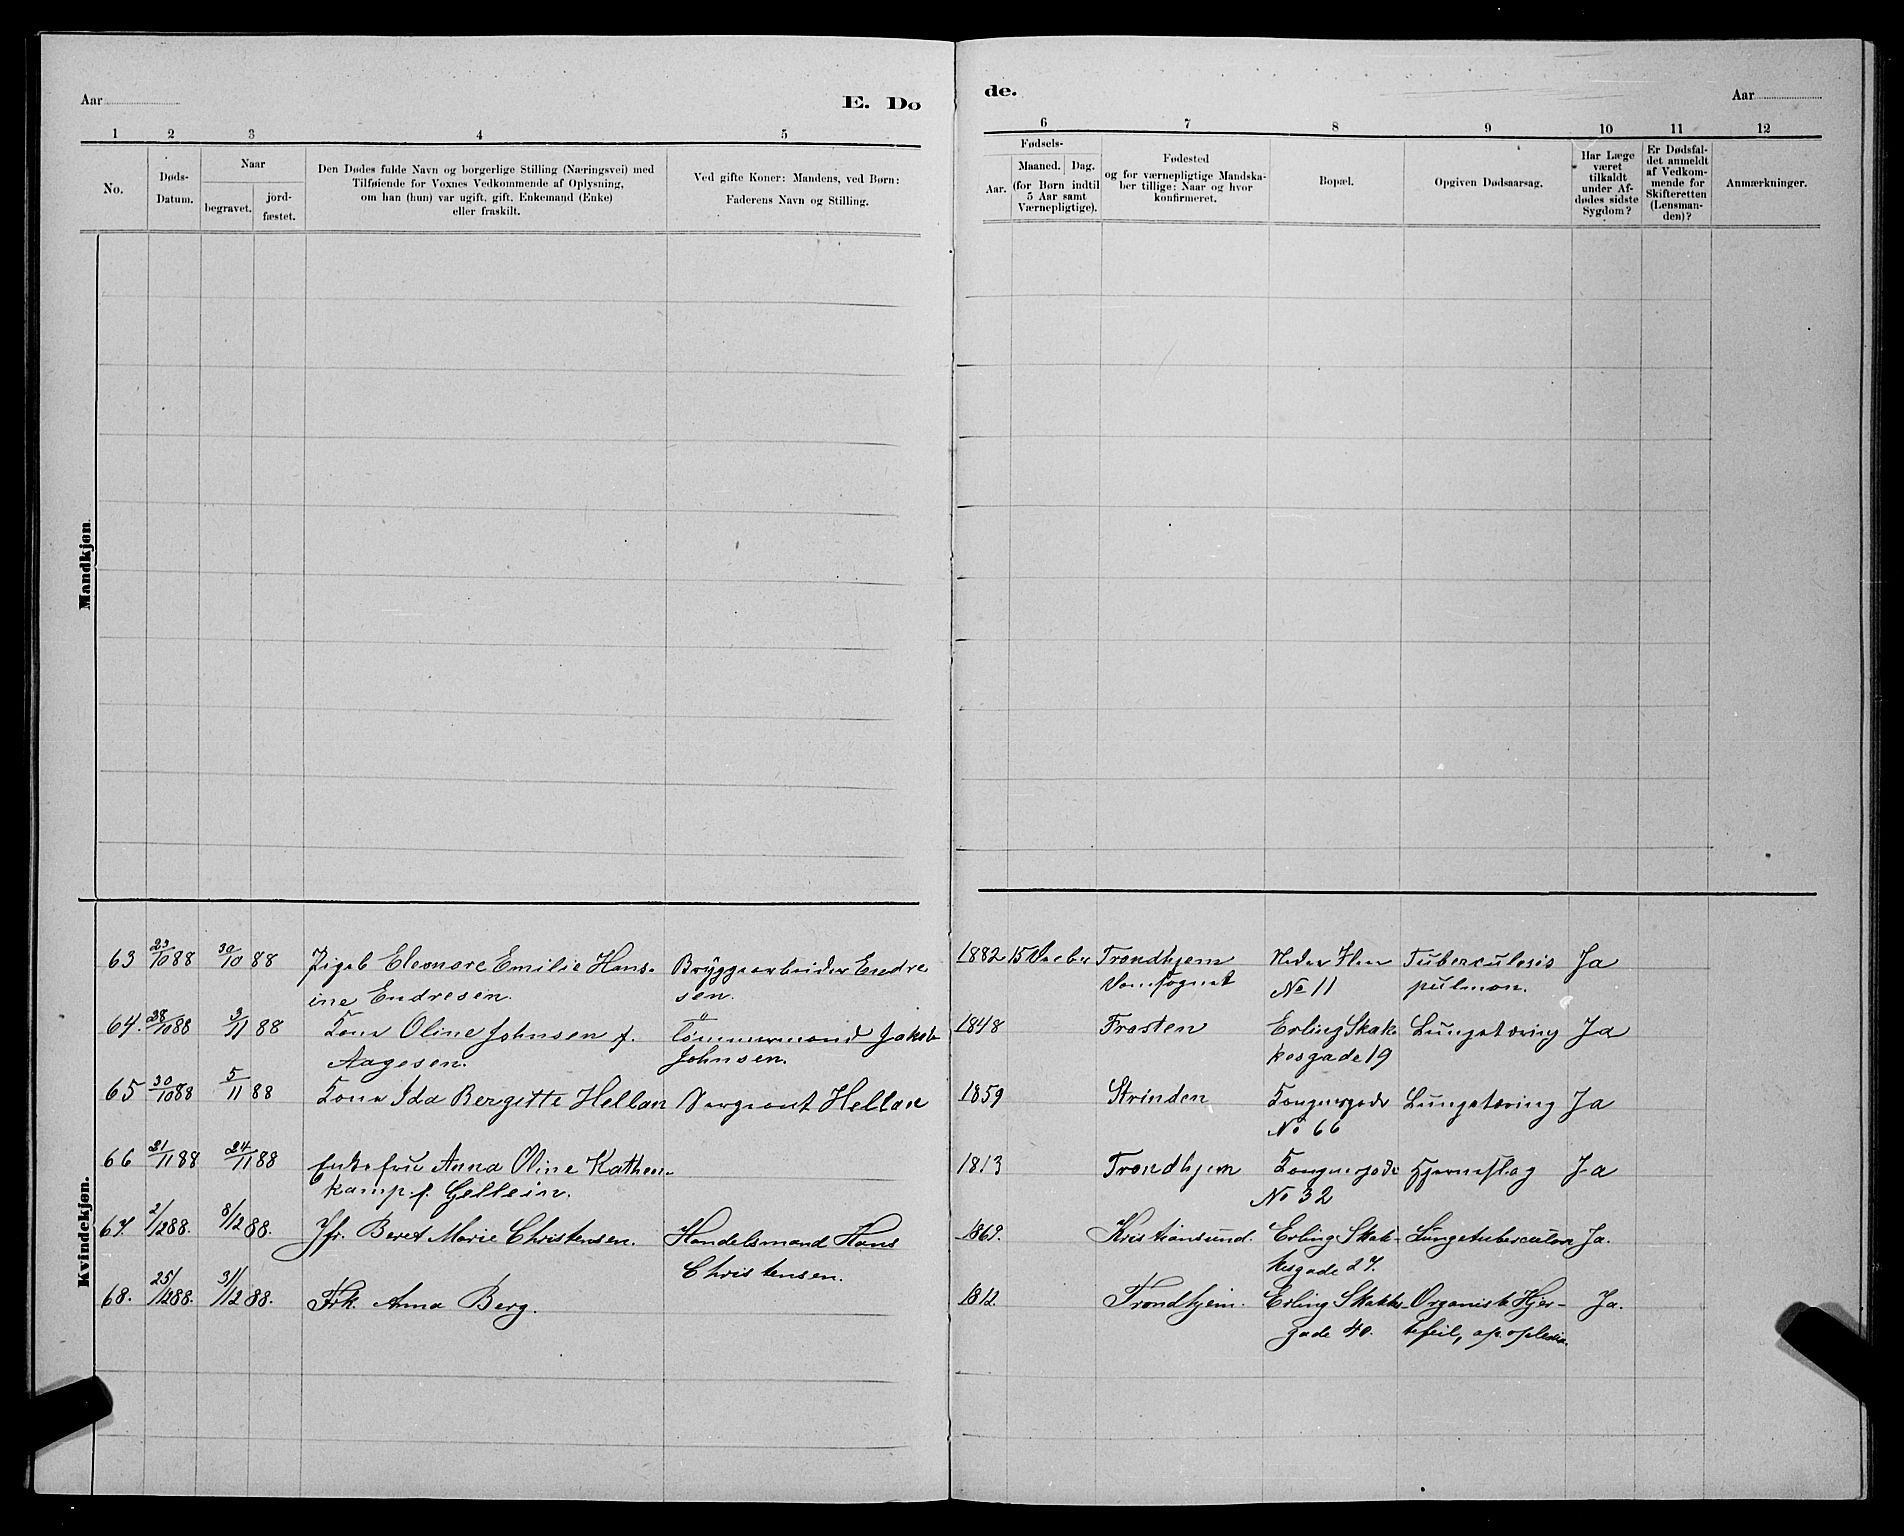 Aar
E. Dø
de.
Aar
1 2 3 4 5 6 7 8 9 10 11 12
No.
Døds-
Datum.
Naar
begravet.
jord-
fæstet.
Den Dødes fulde Navn og borgerlige Stilling (Næringsvei) med
Tilføiende for Voxnes Vedkommende af Oplysning,
om han (hun) var ugift, gift, Enkemand (Enke)
eller fraskilt.
Ved gifte Koner: Mandens, ved Børn:
Faderens Navn og Stilling.
Fødsels-
Aar.
Maaned. Dag.
(for Børn indtil
5 Aar samt
Værnepligtige).
Fødested
og for værnepligtige Mandska-
ber tillige: Naar og hvor
konfirmeret.
Bopæl.
Opgiven Dødsaarsag.
Har Læge
været
tilkaldt
under Af-
dødes sidste
Sygdom?
Er Dødsfal-
det anmeldt
af Vedkom-
mende for
Skifteretten
(Lensman-
den)?
Anmærkninger.
Mandkjøn.
Kvindekjøn.
63 23/10 88 30/10 88 Pigeb Eleonore Emilie Hans- Bryggearbeider Endre 1882 15 Trondhjem No 11 Tuberculosis Ja
ine Endresen. sen. pulmon.
64. 28/10 88 3/11 88 Kone Oline Johnsen f. Tømmermand Jakob 1848 Frosten Erling Skak Lungetæring Ja
Aagesen. Johnsen. kesgade 19
65 30/10 88 5/11 88 Kone Ida Bergitte Hellan Sergeant Hellan 1859 Strinden Kongensgade Lungetæring Ja
No 66
66 21/11 88 24/11 88 Enkefru Anna Oline Kathen- 1813 Trondhjem Kongensgade Hjerneslag Ja
kamp f. Gellein. No 32
67. 2/12 88. 8/12 88. Jfr. Beret Marie Christensen. Handelsmand Hans 1869. Kristiansund. Erling Skak- Lungetuberculose Ja.
Christensen. kesgade 27.
68. 25/12 88. 31/12 88. Frk. Anna Berg. 1812. Trondhjem. Erling Skakkes- Organisk Hjer- Ja.
gade 40. tefeil, apoplexia.